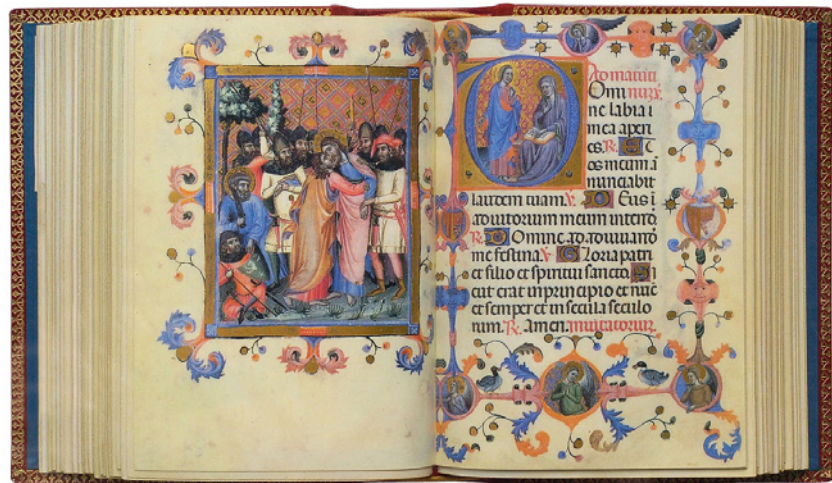 Ad matuti
Omi nus. V.
ne labia i
mea aperi
es. R. Et
os meum ā
nunciabit
laudem tuam. V. Deus ī
adiutorium meum intende.
R. Domine ad adiuvandū
me festina. V. Gloria patri
et filio et spiritui sancto. Si
cut erat in principio et nūc
et semper et in secula seculo
rum. R. amen. Invitatoriuz.